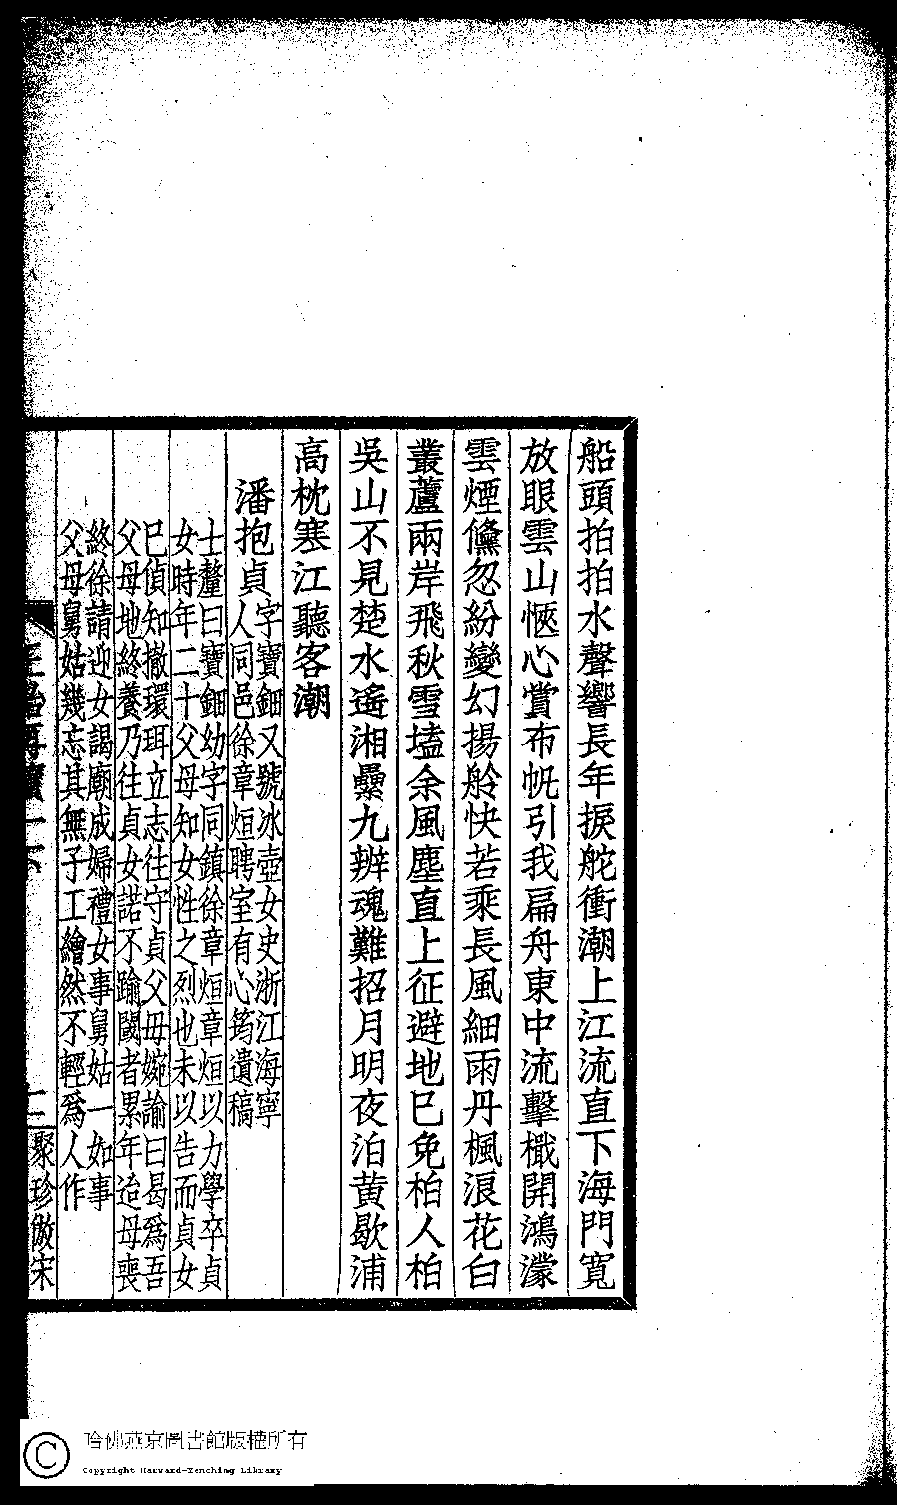 船頭拍拍水聲響長年捩舵衝潮上江流直下海門寬
放眼雲山愜心賞布帆引我扁舟東中流擊檝開鴻濛
雲煙儵忽紛變幻揚舲快若乘長風細雨丹楓浪花白
叢蘆兩岸飛秋雪壒余風塵直上征避地已免柏人柏
吳山不見楚水遙湘纍九辨魂難招月明夜泊黃歇浦
高枕寒江聽客潮
潘抱貞
字寶鈿又號冰壺女史浙江海寧
人同邑徐章烜聘室有心筠遺稿
士釐曰寶鈿幼字同鎮徐章烜章烜以力學卒貞
女時年二十父母知女性之烈也未以告而貞女
已偵知撤環珥立志往守貞父母婉諭曰曷爲吾
父母地終養乃往貞女諾不踰閾者累年迨母喪
終徐請迎女謁廟成婦禮女事舅姑一如事
父母舅姑幾忘其無子工繪然不輕爲人作
二
聚珍倣宋
哈佛燕京圖書館版權所有
Copyright Harvard-Yenching Library